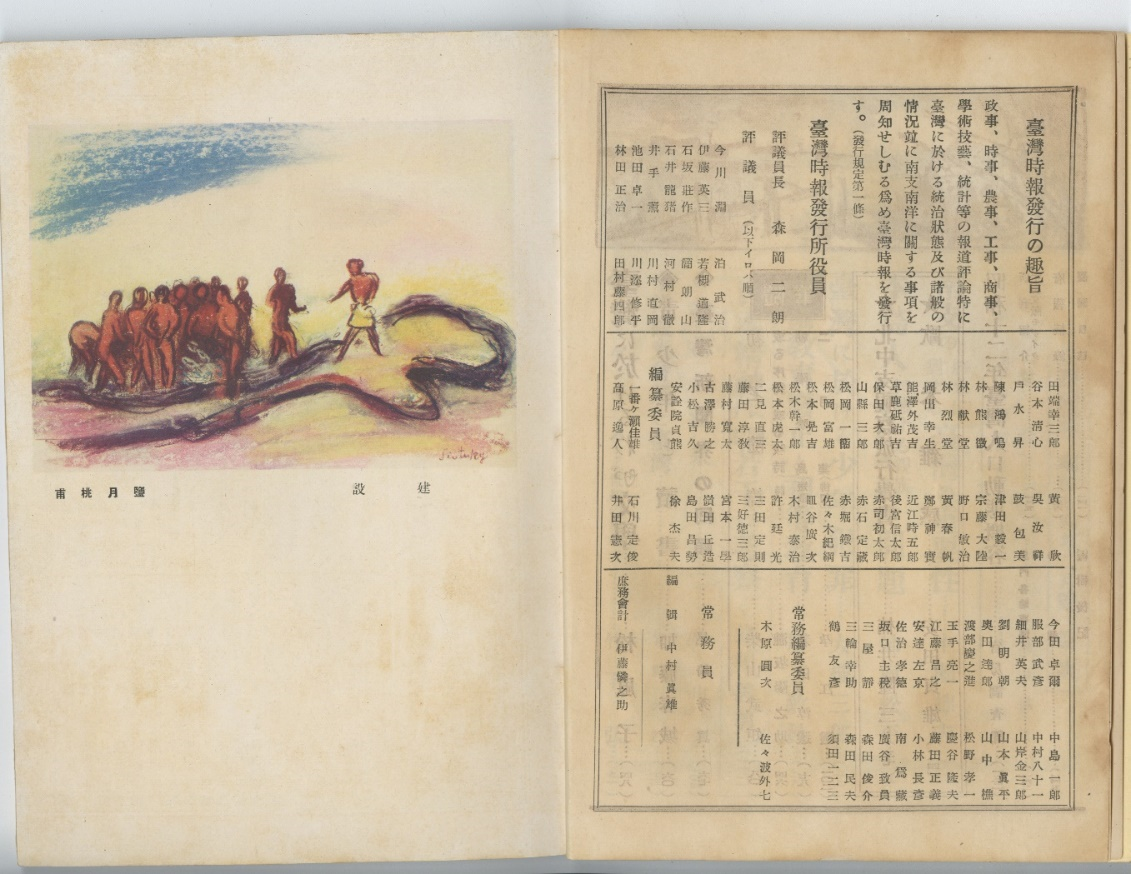 臺灣時報發行の趣旨
政事、時事、農事、工事、商事、
學術技藝、統計等の報道評論特に
臺灣に於ける統治狀態及び諸般の
情況竝に南支南洋に關する事項を
周知せしむる爲め臺灣時報を發行
す。（發行規定第一條）
臺灣時報發行所役員
評議員長 森岡二朗
評議員（以下イロハ順）
今川淵 泊武治
伊藤英三 若槻道隆
石坂莊作
石井龍猪 河村徹
井手薰 川村直岡
池田卓一 川添修平
林田正治 田村藤四郎
田端幸三郎 黃欣
谷本淸心 吳汝祥
戶水昇 鼓包美
陳鴻鳴 津田毅一
林熊徵 宗藤大陸
林獻堂 野口敏治
林烈堂 黃春帆
岡出幸生 鄭神寶
熊澤外茂吉 近江時五郎
草鹿砥祐吉 後宮信太郎
保田次郎 赤司初太郎
山縣三郎 赤石定藏
松岡一衞 赤堀鐵吉
松岡富雄 佐々木紀綱
松本晃吉 皿谷廣次
松木幹一郎 木村泰治
松本虎太 許廷光
二見直三 三田定則
藤田淳敎 三好德三郎
藤村寬太 宮本一學
古澤勝之 嶺田丘造
小松吉久 島田昌勢
安詮院貞熊 徐杰夫
編纂委員
一番ヶ瀨佳雄 石川定俊
高原逸人 井田憲次
今田卓爾 中島一郎
服部武彥 中村八十一
細井英夫 山岸金三郎
劉明朝 山本眞平
奧田達郎 山中樵
渡部慶之進 松野孝一
玉手亮一 慶谷隆夫
江藤昌之 藤田正義
安達左京 小林長彥
佐治孝德 南爲藏
坂口主稅 廣谷致員
三屋靜 森田俊介
三輪幸助 森田民夫
鶴友彥 須田一二三
常務編纂委員
木原圓次 佐々波外七
常務員
編輯 中村眞雄
庶務會計 伊藤憐之助
建設
鹽月桃甫